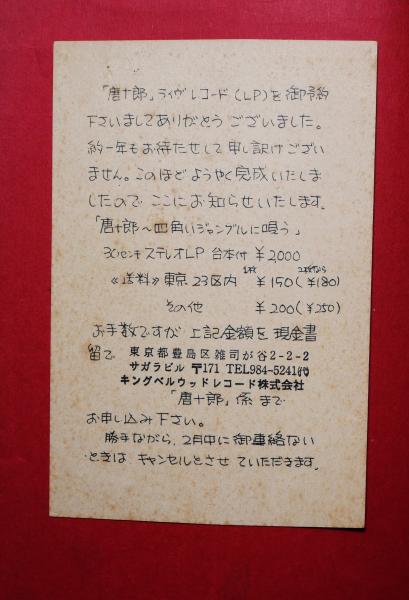 「唐十郎」ライヴレコード(LP)を御予約
下さいましてありがとうございました。
約一年もお待たせして申し訳けござい
ません。このほどようやく完成いたしま
したので ここにお知らせいたします。
「唐十郎〜四角いジャングルに唄う」
30センチステレオLP 台本付 ¥2,000
1枚 2枚なら
≪送料≫東京23区内 ¥150(¥180)
その他 ¥200(¥250)
お手数ですが 上記金額を 現金書
留で 東京都豊島区雑司が谷2-2-2
サガラビル 〒171 TEL984-5241㈹
キングベルウッドレコード株式会社
「唐十郎」係 まで
お申し込み下さい。
勝手ながら、2月中に御連絡ない
ときは キャンセルとさせていただきます。